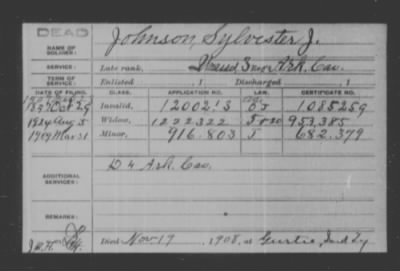 DEAD
NAME OF SOLDIER: Johnson, Sylvester J.
SERVICE: Late rank, 3 Ark. Cav.
TERM OF SERVICE: Enlisted , 1 Discharged , 1
DATE OF FILING. CLASS. APPLICATION NO. LAW. CERTIFICATE NO.
Oct 29 Invalid, 1200213 1085259
1924 Aug 5 Widow, 1222322 953,385
1919 Mar 31 Minor, 916.803 682.379
ADDITIONAL SERVICES: D 4 Ark. Cav.
REMARKS:
Died Nov 19 , 1908, at Gertie, Ind Ty.